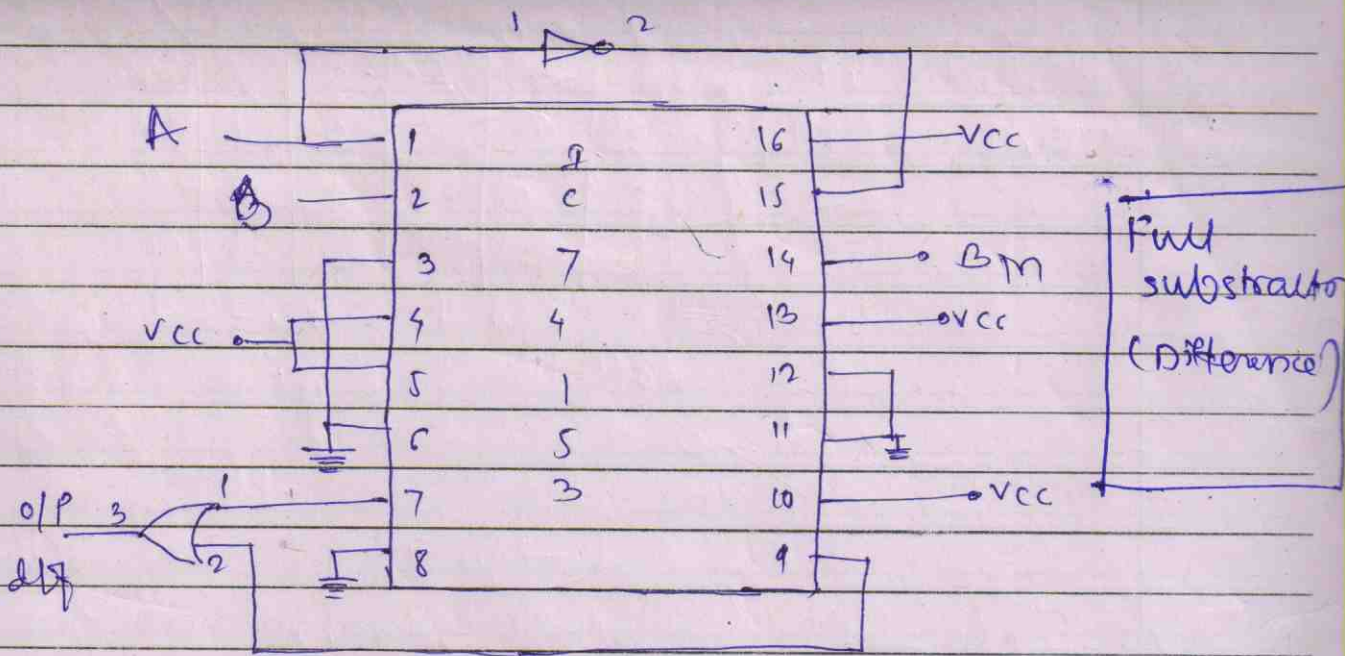 1 2
A 1 I 16 VCC
B 2 C 15
3 7 14 Bin
VCC 4 4 13 VCC
5 1 12
6 5 11
O/P 3 1 7 3 10 VCC
2 8 9
Full
substractor
(Difference)